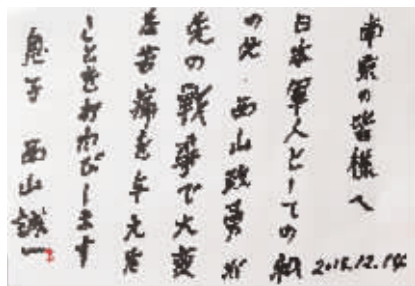 南京の皆様へ
日本軍人としての私
の父・西山政勇が
先の戦争で大変
な苦痛を与えた
ことをおわびします
息子 西山誠一
2018.12.14